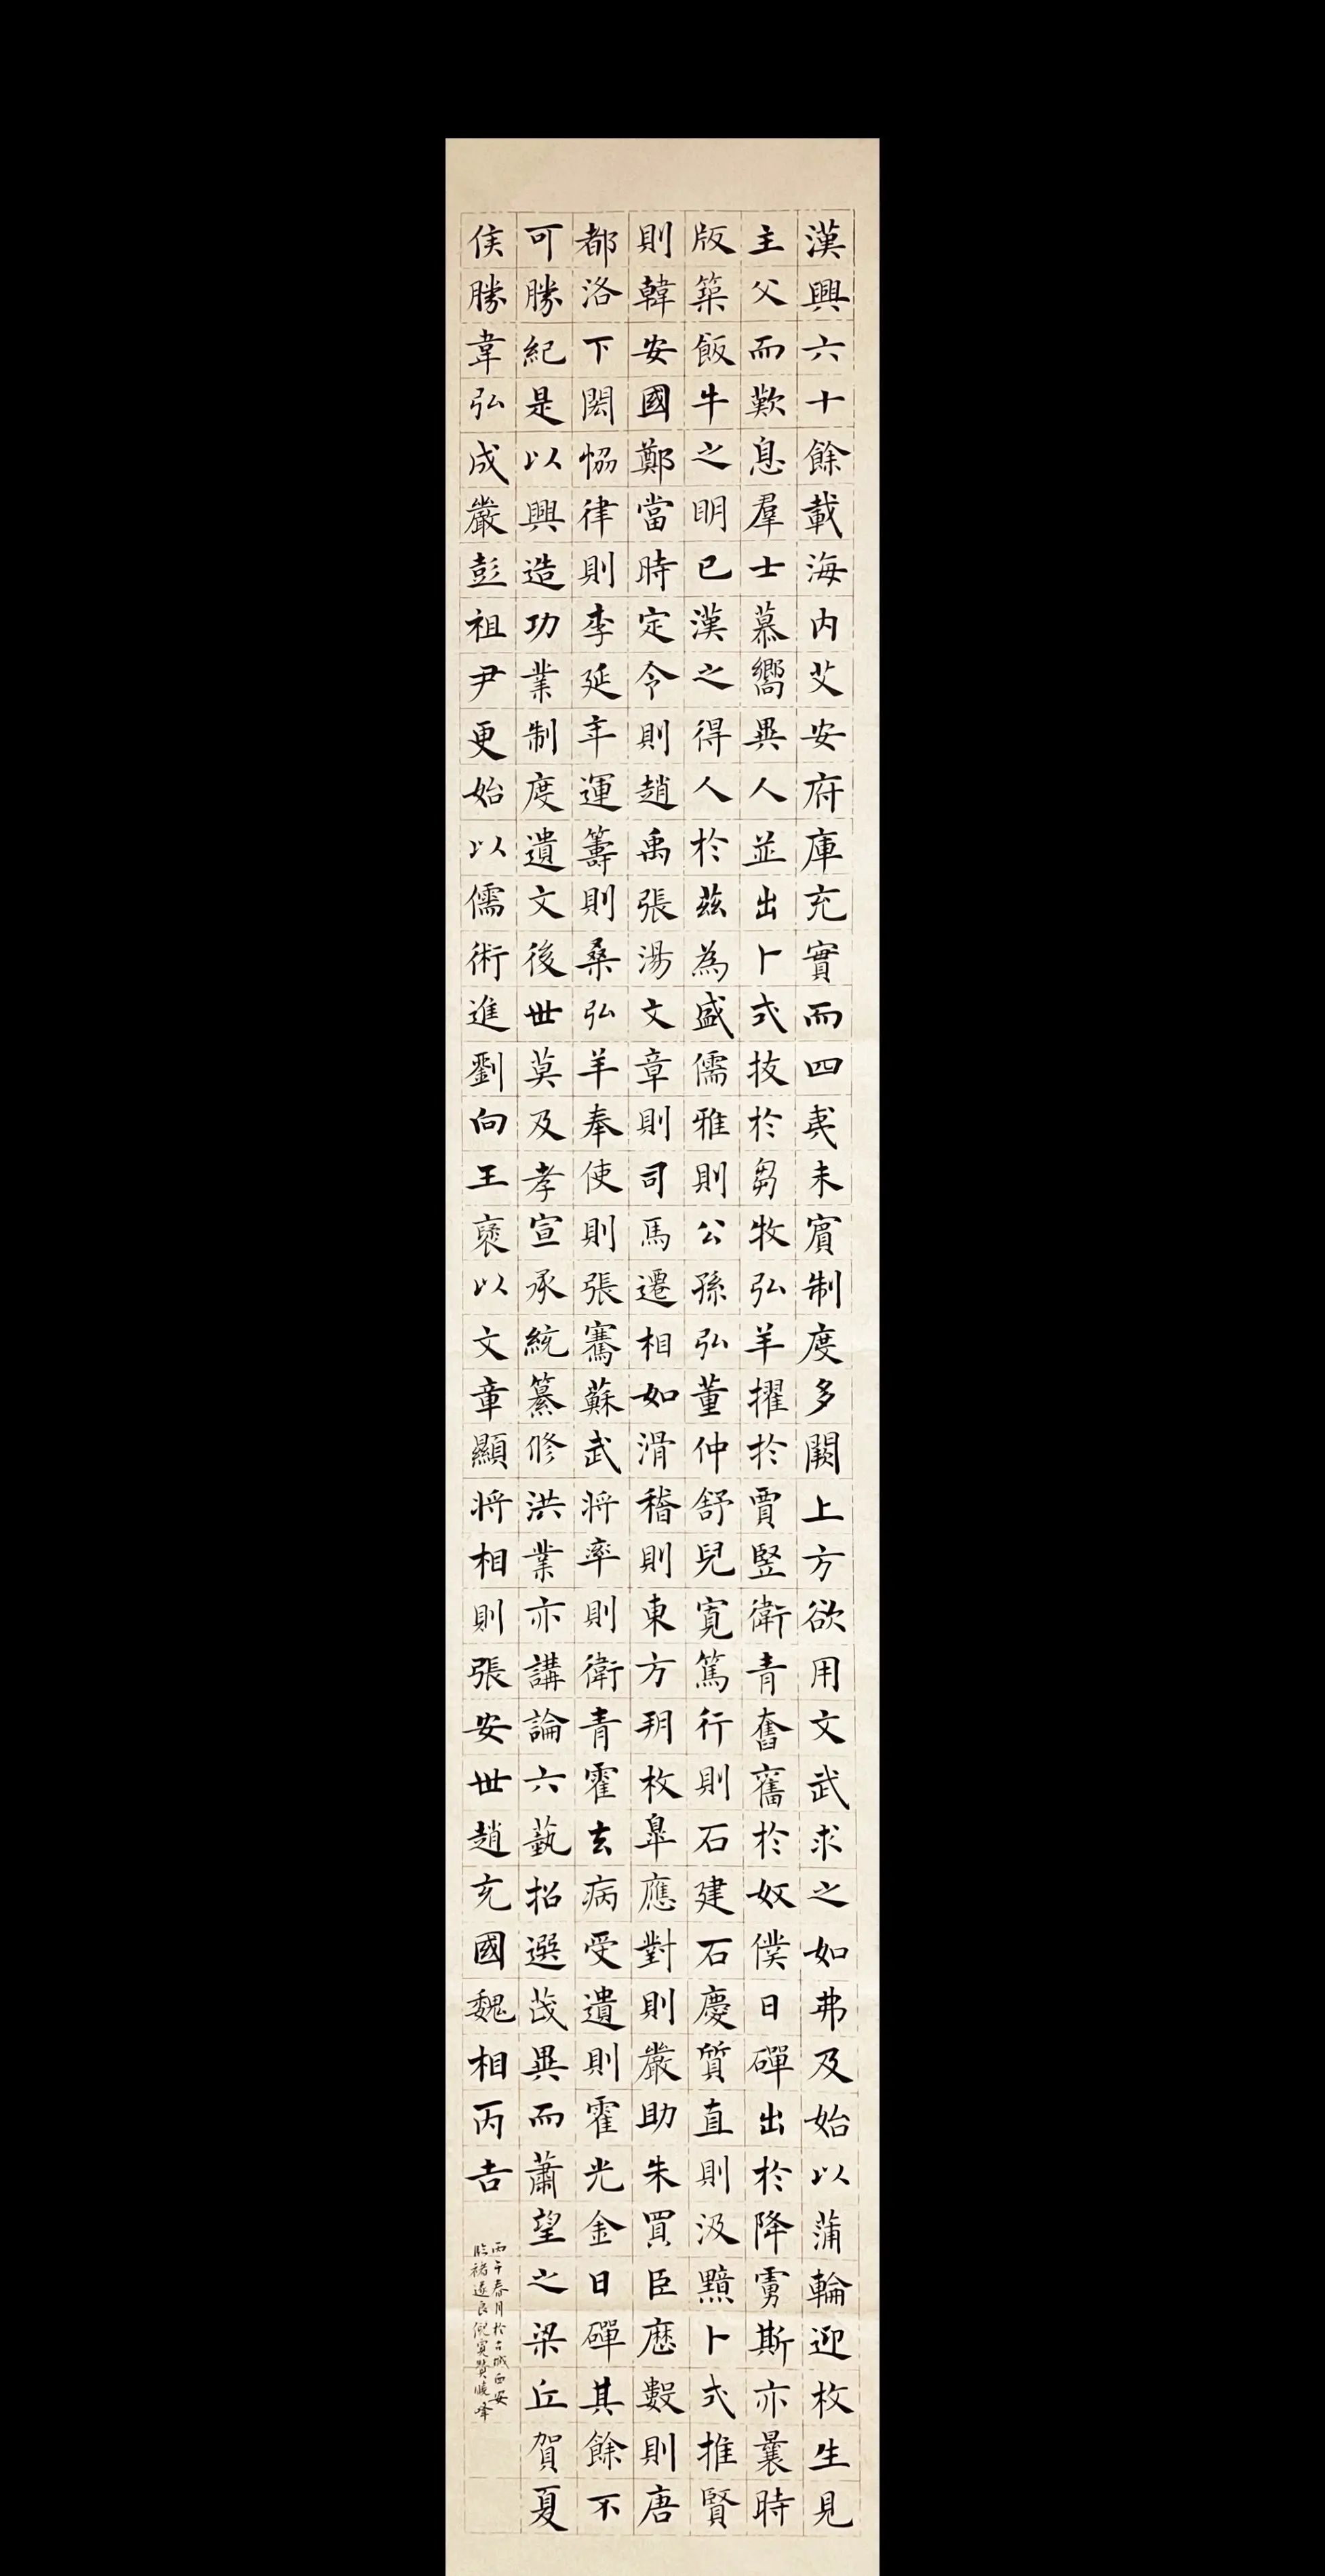 漢興六十餘載海内艾安府庫充實而四夷未賓制度多闕上方欲用文武求之如弗及始以蒲輪迎枚生見
主父而歎息羣士慕嚮異人並出卜式拔於芻牧弘羊擢於賈竪衛青奮舊於奴僕日磾出於降虜斯亦曩時
版築飯牛之明已漢之得人於茲為盛儒雅則公孫弘董仲舒兒寬篤行則石建石慶質直則汲黯卜式推賢
則韓安國鄭當時定令則趙禹張湯文章則司馬遷相如滑稽則東方朔枚皐應對則嚴助朱買臣歷數則唐
都洛下閎恊律則李延年運籌則桑弘羊奉使則張騫蘇武將率則衛青霍去病受遺則霍光金日磾其餘不
可勝紀是以興造功業制度遺文後世莫及孝宣承統纂修洪業亦講論六藝招選茂異而蕭望之梁丘賀夏
侯勝韋弘成嚴彭祖尹更始以儒術進劉向王褒以文章顯將相則張安世趙充國魏相丙吉
丙午春月於古城西安
臨褚遂良倪寬贊曉峰